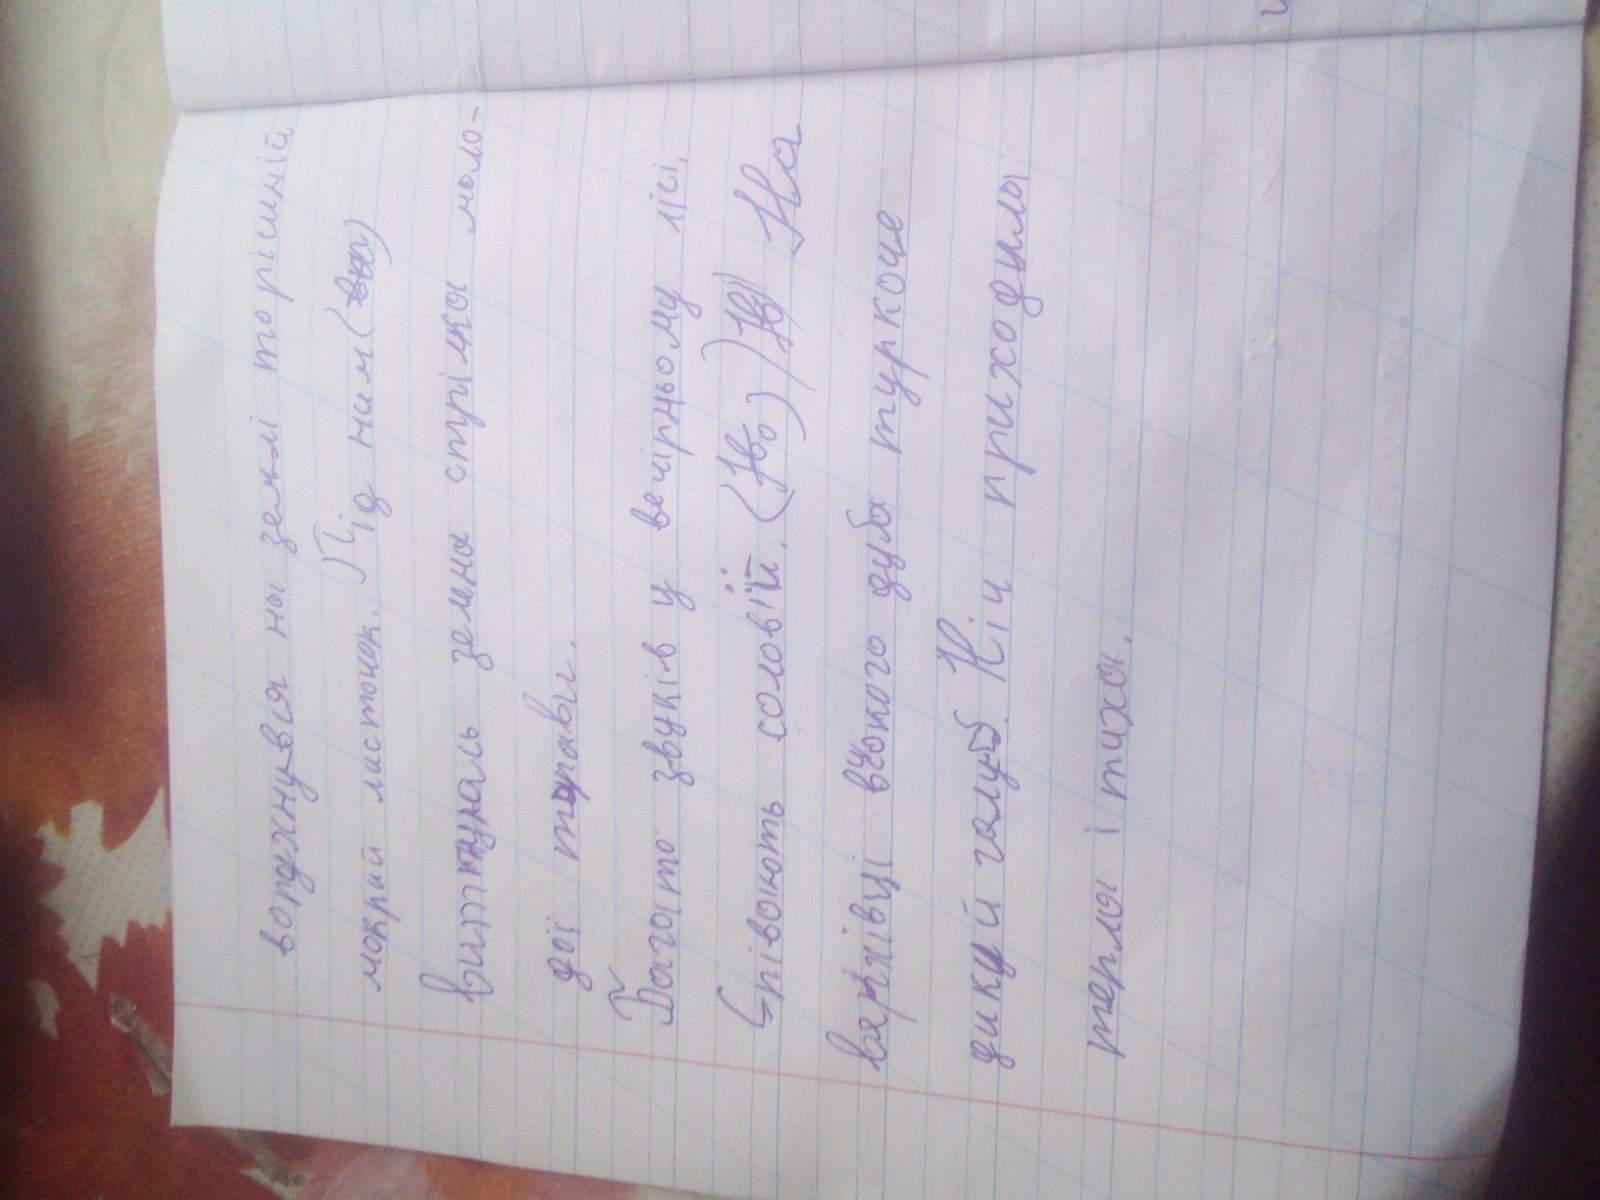 ворохнувся на землі торішній
мокрий листочок. Під ним
витткналь зелена стрілка моло-
дої трави.
Багато звуків у вечірньому лісі.
Співають соловїй. На
верхівці високого дуба туркоче
дикий голуб. Ніч приходила
тепла і тиха.